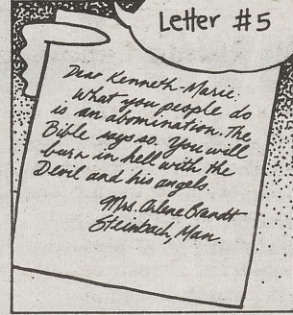 Letter #5
Dear Kenneth-Marie.
What you people do
is an abomination. The
Bible says so. You will
burn in hell with the
Devil and his angels.
Mrs. Arlene Brandt
Steinbach, Man.